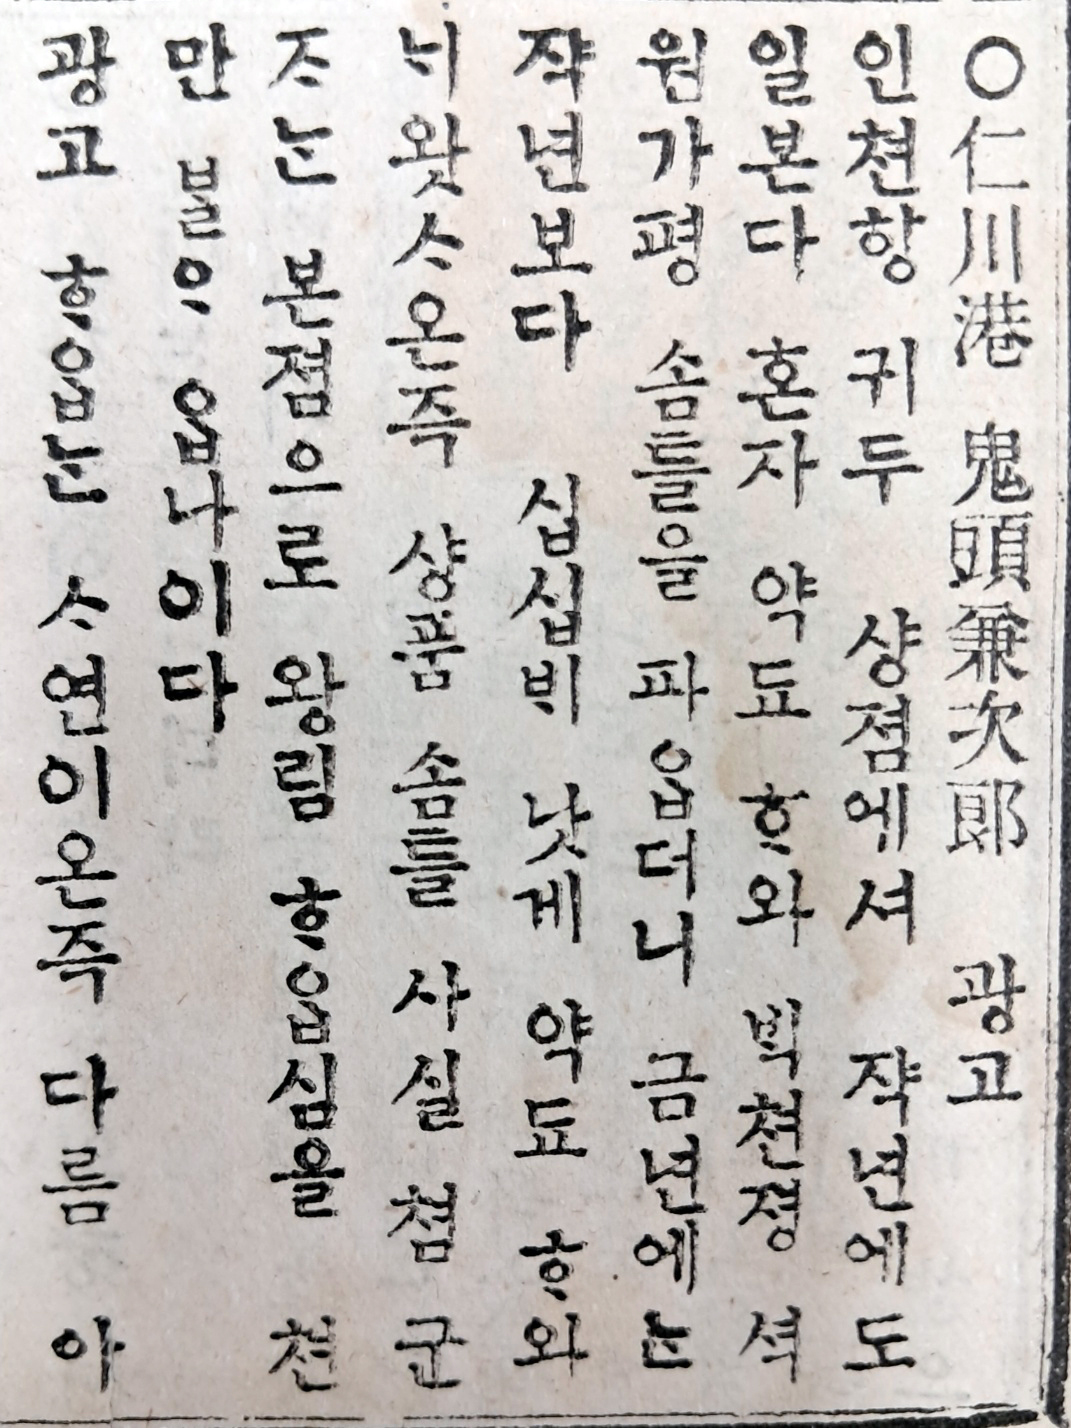 ○仁川港 鬼頭兼次郎 광고
인쳔항 귀두 샹졈에셔 쟉년에도
일본다 혼자 약됴 ᄒᆞ와 ᄇᆡᆨ쳔졍 셕
원가평 솜틀을 파ᄋᆞᆸ더니 금년에ᄂᆞᆫ
쟉년보다 십십ᄇᆡ 낫게 약됴 ᄒᆞ와
ᄂᆡ왓ᄉᆞ온즉 샹품 솜틀 사실 쳠 군
ᄌᆞᄂᆞᆫ 본졈으로 왕림 ᄒᆞᄋᆞᆸ심을 쳔
만 ᄇᆞᆯᄋᆞ ᄋᆞᆸ나이다
광고 ᄒᆞᄋᆞᆸᄂᆞᆫ ᄉᆞ연이온즉 다름 아